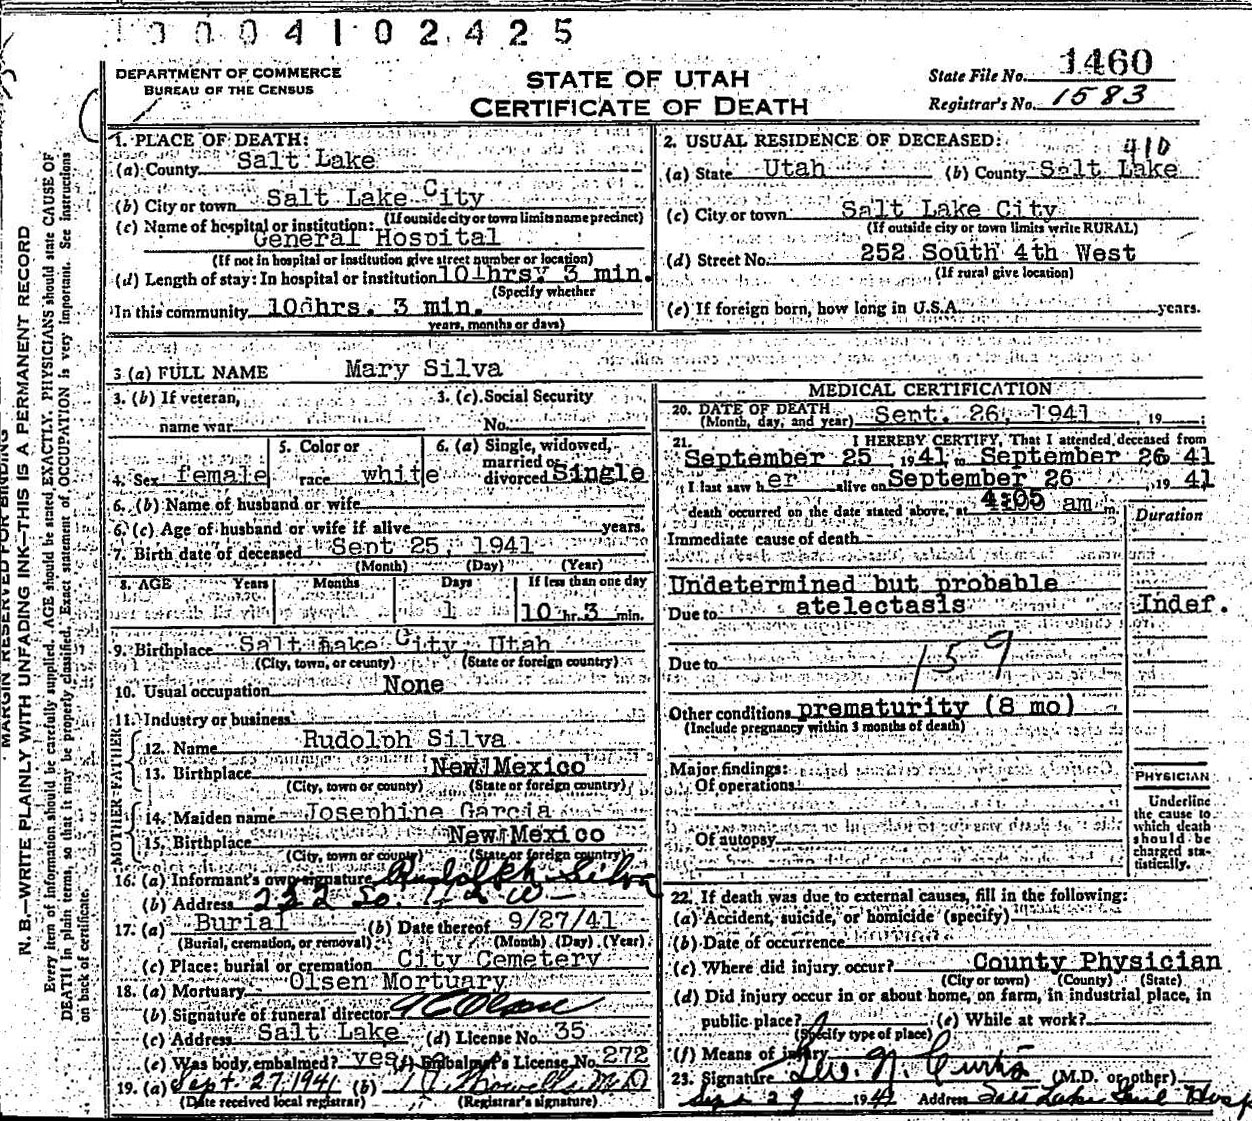 0004102425
DEPARTMENT OF COMMERCE
BUREAU OF THE CENSUS
STATE OF UTAH
CERTIFICATE OF DEATH
State File No. 1460
Registrar's No. 1583
MARGIN RESERVED FOR BINDING
N. B.—WRITE PLAINLY WITH UNFADING INK—THIS IS A PERMANENT RECORD
Every item of information should be carefully supplied. AGE should be stated EXACTLY. PHYSICIANS should state CAUSE OF
DEATH in plain terms, so that it may be properly classified. Exact statement of OCCUPATION is very important. See instructions
on back of certificate.
1. PLACE OF DEATH:
(a) County Salt Lake
(b) City or town Salt Lake City
(If outside city or town limits name precinct)
(c) Name of hospital or institution:
General Hospital
(If not in hospital or institution give street number or location)
(d) Length of stay: In hospital or institution 10 hrs. 3 min.
(Specify whether
In this community 10 hrs. 3 min.
years, months or days)
2. USUAL RESIDENCE OF DECEASED:
410
(a) State Utah (b) County Salt Lake
(c) City or town Salt Lake City
(If outside city or town limits write RURAL)
(d) Street No. 252 South 4th West
(If rural give location)
(e) If foreign born, how long in U.S.A. years.
3 (a) FULL NAME Mary Silva
3. (b) If veteran, 3. (c) Social Security
name war No.
4. Sex female 5. Color or race white 6. (a) Single, widowed, married or divorced Single
6. (b) Name of husband or wife
6. (c) Age of husband or wife if alive years.
7. Birth date of deceased Sept 25, 1941
(Month) (Day) (Year)
8. AGE Years Months Days If less than one day
1 10 hr. 3 min.
9. Birthplace Salt Lake City, Utah
(City, town, or county) (State or foreign country)
10. Usual occupation None
11. Industry or business
FATHER
12. Name Rudolph Silva
13. Birthplace New Mexico
(City, town or county) (State or foreign country)
MOTHER
14. Maiden name Josephine Garcia
15. Birthplace New Mexico
(City, town or county) (State or foreign country)
16. (a) Informant's own signature Rudolph Silva
(b) Address So.
17. (a) Burial (b) Date thereof 9/27/41
(Burial, cremation, or removal) (Month) (Day) (Year)
(c) Place: burial or cremation City Cemetery
18. (a) Mortuary Olsen Mortuary
(b) Signature of funeral director
(c) Address Salt Lake (d) License No. 35
(e) Was body embalmed? yes (f) Embalmer's License No. 272
19. (a) Sept. 27, 1941 (b) M D
(Date received local registrar) (Registrar's signature)
MEDICAL CERTIFICATION
20. DATE OF DEATH
(Month, day, and year) Sept. 26, 1941, 19
21. I HEREBY CERTIFY, That I attended deceased from
September 25 1941 to September 26 41
I last saw her alive on September 26, 1941
death occurred on the date stated above, at 4:05 am m.
Duration
Immediate cause of death
Undetermined but probable
Due to atelectasis Indef.
159
Due to
Other conditions prematurity (8 mo)
(Include pregnancy within 3 months of death)
Major findings:
Of operations
Of autopsy
PHYSICIAN
Underline
the cause to
which death
should be
charged sta-
tistically.
22. If death was due to external causes, fill in the following:
(a) Accident, suicide, or homicide (specify)
(b) Date of occurrence
(c) Where did injury occur? County Physician
(City or town) (County) (State)
(d) Did injury occur in or about home, on farm, in industrial place, in
public place? (e) While at work?
(Specify type of place)
(f) Means of injury
23. Signature N. Curtis (M.D. or other)
Sept 29 1941 Address Salt Lake Hosp